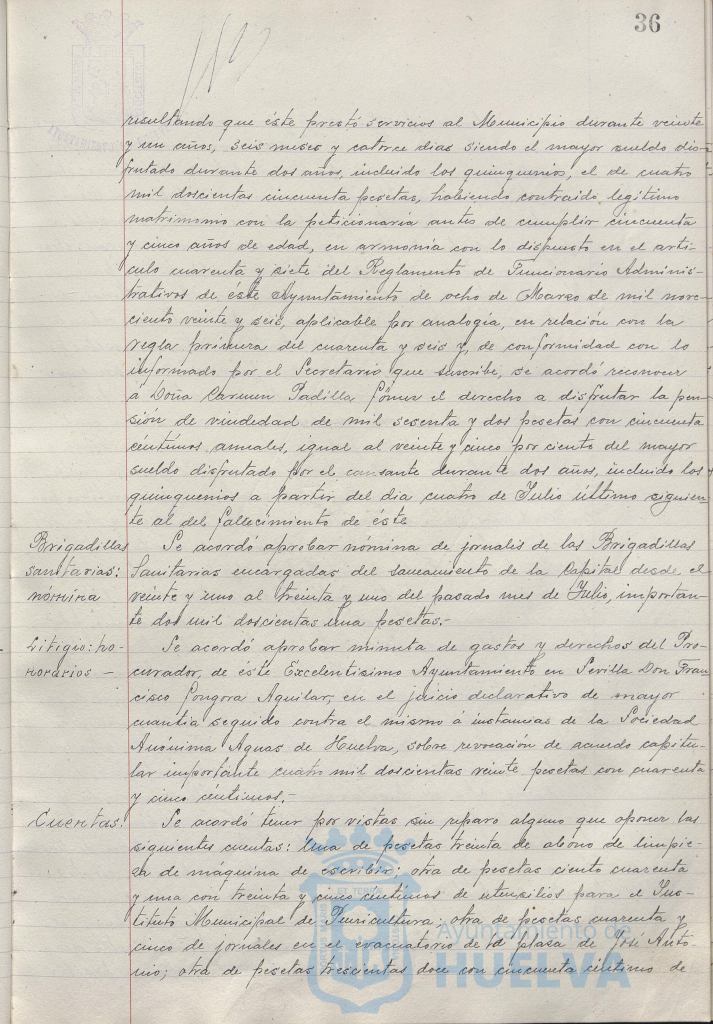 36
resultando que éste prestó servicios al Municipio durante veinte
y un años, seis meses y catorce dias siendo el mayor sueldo dis-
frutado durante dos años, incluido los quinquenios, el de cuatro
mil doscientas cincuenta pesetas, habiendo contraido legitimo
matrimonio con la peticionaria antes de cumplir cincuenta
y cinco años de edad, en armonia con lo dispuesto en el arti-
culo cuarenta y siete del Reglamento de Funcionario Adminis-
trativos de éste Ayuntamiento de ocho de Marzo de mil nove-
ciento veinte y seis, aplicable por analogía, en relación con la
regla primera del cuarenta y seis y, de conformidad con lo
informado por el Secretario que suscribe, se acordó reconocer
á Doña Carmen Padilla Gómez el derecho a disfrutar la pen-
sión de viudedad de mil sesenta y dos pesetas con cincuenta
céntimos anuales, igual al veinte y cinco por ciento del mayor
sueldo disfrutado por el causante durante dos años, incluido los
quinquenios a partir del dia cuatro de Julio último siguien-
te al del fallecimiento de éste
Brigadillas sanitarias: nomina
Se acordó aprobar nómina de jornales de las Brigadillas
Sanitarias encargadas del saneamiento de la Capital desde el
veinte y uno al treinta y uno del pasado mes de Julio, importan-
te dos mil doscientas una pesetas.-
Litigio: ho-
norarios -
Se acordó aprobar minuta de gastos y derechos del Pro-
curador, de éste Excelentisimo Ayuntamiento en Sevilla Don Fran
cisco Gongora Aguilar, en el juicio declarativo de mayor
cuantia seguido contra el mismo á instancias de la Sociedad
Anónima Aguas de Huelva, sobre revocación de acuerdo capitu-
lar importante cuatro mil doscientas veinte pesetas con cuarenta
y cinco céntimos.-
Cuentas:
Se acordó tener por vistas sin reparo alguno que oponer las
siguientes cuentas: Una de pesetas treinta de abono de limpie-
za de máquina de escribir; otra de pesetas ciento cuarenta
y una con treinta y cinco centimos de utensilios para el Ins-
tituto Municipal de Puericultura; otra de pesetas cuarenta y
cinco de jornales en el evacuatorio de la plaza de José Anto-
nio; otra de pesetas trescientas doce con cincuenta céntimo de
Ayuntamiento de
HUELVA